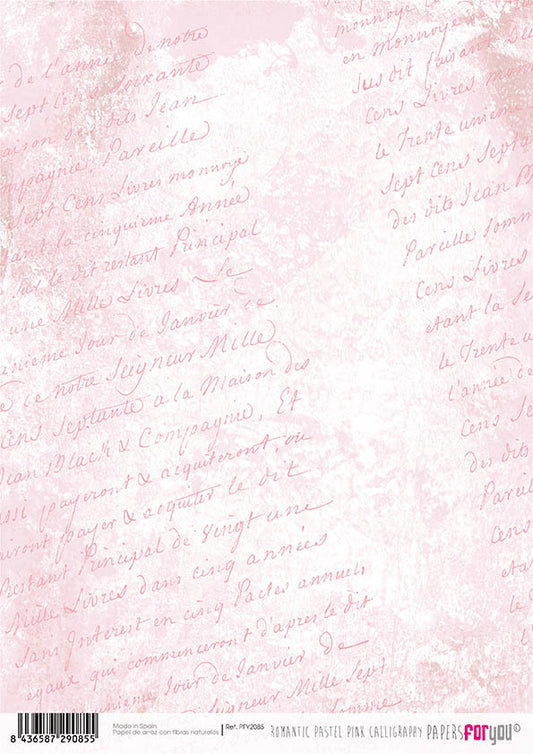 de l'année de notre
Sept Cens Soixante
Maison des dits Jean
Compagnie, Pareille
Sept Cens Livres monnoye
ant la cinquieme Année
Sur le dit restant Principal
une Mille Livres Le
unieme Jour de Janvier de
de ce notre Seigneur Mille
Cens Septante a la Maison des
Jean Black & Compagnie, Et
aussi payeront & acquiteront, ou
payer & acquiter le dit
Restant Principal de Vingt une
Mille Livres dans cinq années
Sans Interest en cinq Pactes annuels
egaux qui commenceront d'apres le dit
unieme Jour de Janvier de
Seigneur Mille Sept
Somme
monnoye
en Monnoye
Sus dit faisant
Cens Livres mon
le Trente unieme
Sept Cens Septa
des dits Jean B
Pareille Somme
Cens Livres
etant la Se
le Trente un
l'année de
Sept Cens
des dits
Pareille
Cens
eta
le
l'an
8 436587 290855
Made in Spain
Papel de arroz con fibras naturales
Ref. PFY2085
ROMANTIC PASTEL PINK CALLIGRAPHY
PAPERSFORyou©